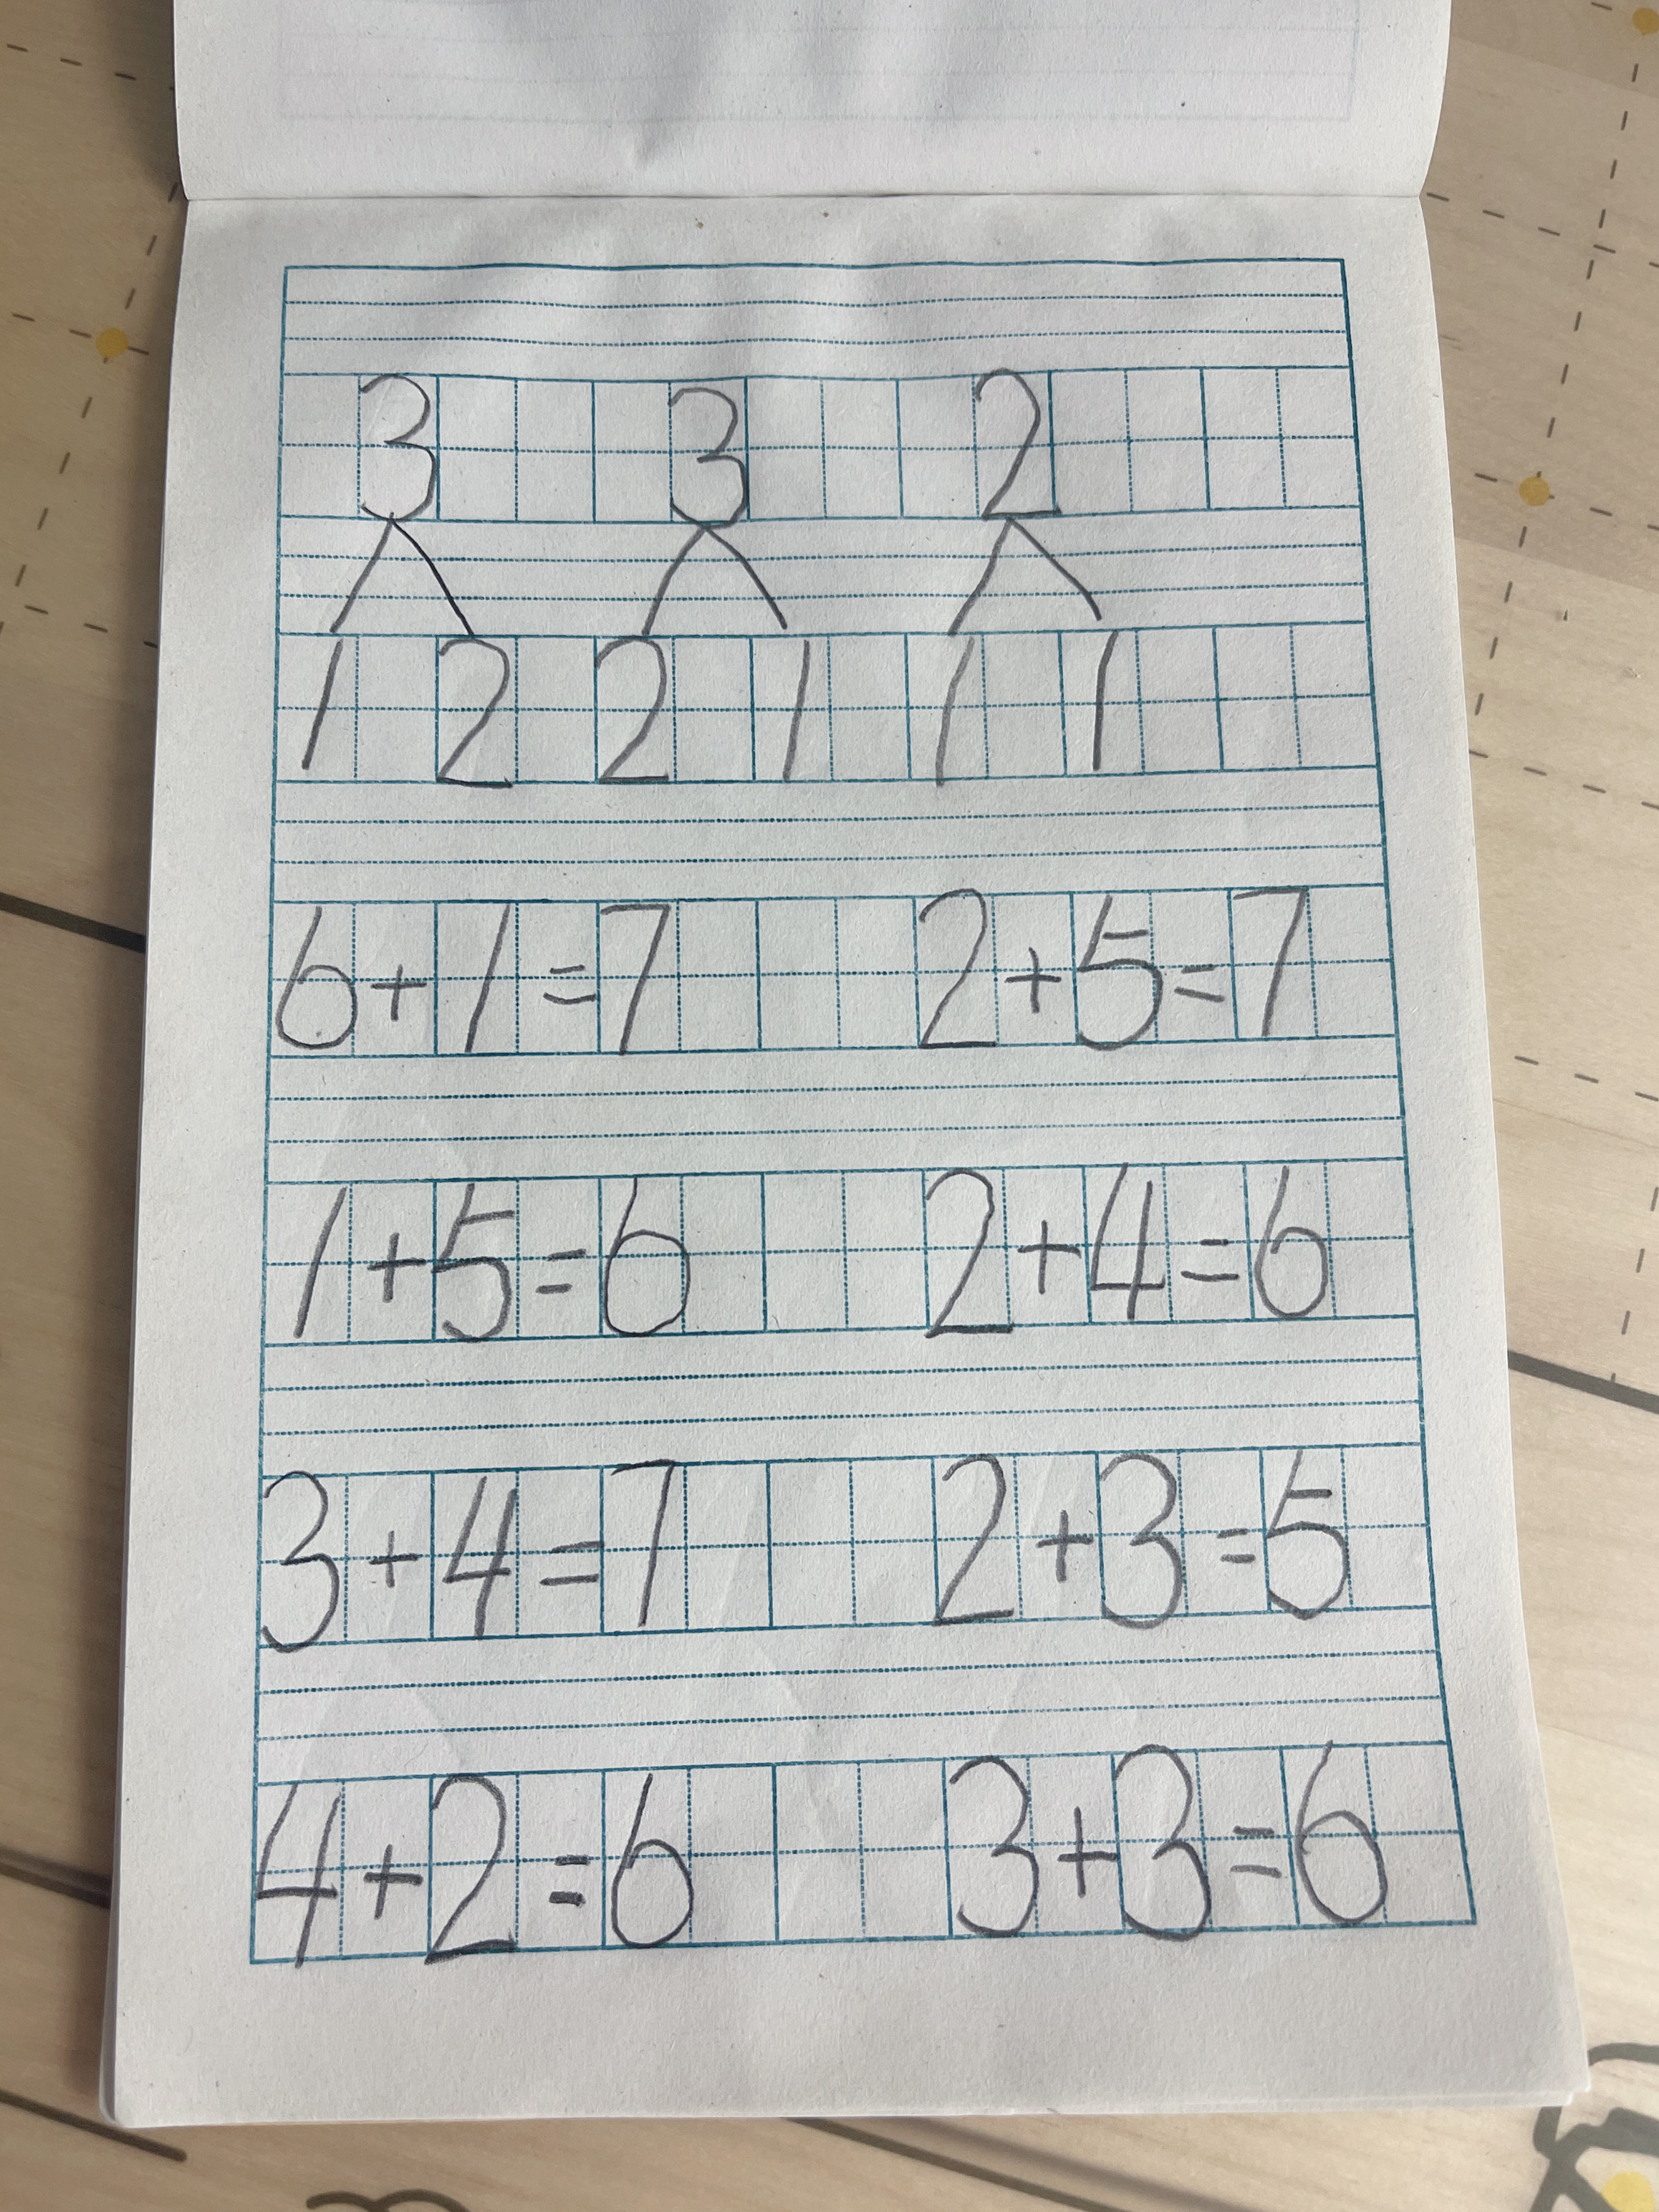 3 3 2
1 2 2 1 1 1
6+1=7 2+5=7
1+5=6 2+4=6
3+4=7 2+3=5
4+2=6 3+3=6